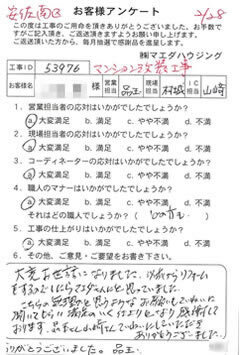 安佐南区
お客様アンケート
2/28
この度は工事のご用命を頂きありがとうございました。お手数で
すがご記入頂き、ご返送頂きますようお願い申し上げます。
ご返送頂いた方から、毎月抽選で感謝品を進呈します。
㈱マエダハウジング
工事ID 53976 マンション改装工事
お客様名 様 営業担当 品玉 現場担当 村城 IC担当 山崎
1. 営業担当者の応対はいかがでしたでしょうか?
a.大変満足 b.満足 c.やや不満 d.不満
2. 現場担当者の応対はいかがでしたでしょうか?
a.大変満足 b.満足 c.やや不満 d.不満
3. コーディネーターの応対はいかがでしたでしょうか?
a.大変満足 b.満足 c.やや不満 d.不満
4. 職人のマナーはいかがでしたでしょうか?
a.大変満足 b.満足 c.やや不満 d.不満
それはどの職人でしょうか? (
5. 工事の仕上がりはいかがでしたでしょうか?
a.大変満足 b.満足 c.やや不満 d.不満
6. その他、ご意見・ご要望をお書き下さい。
大変お世話になりました。以前からリフォーム
をするのでしたらマエダさんにと思っていました。
こちらの
聞いてもらい 満足のいく仕上りになり感謝して
おります。品玉さん、山崎さん ていねいにしていただき
ありがとうございました。
ありがとうございました。 品玉.